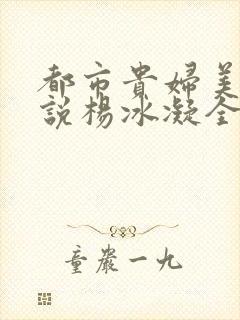 都市貴婦美
說楊冰凝全
童嚴一九